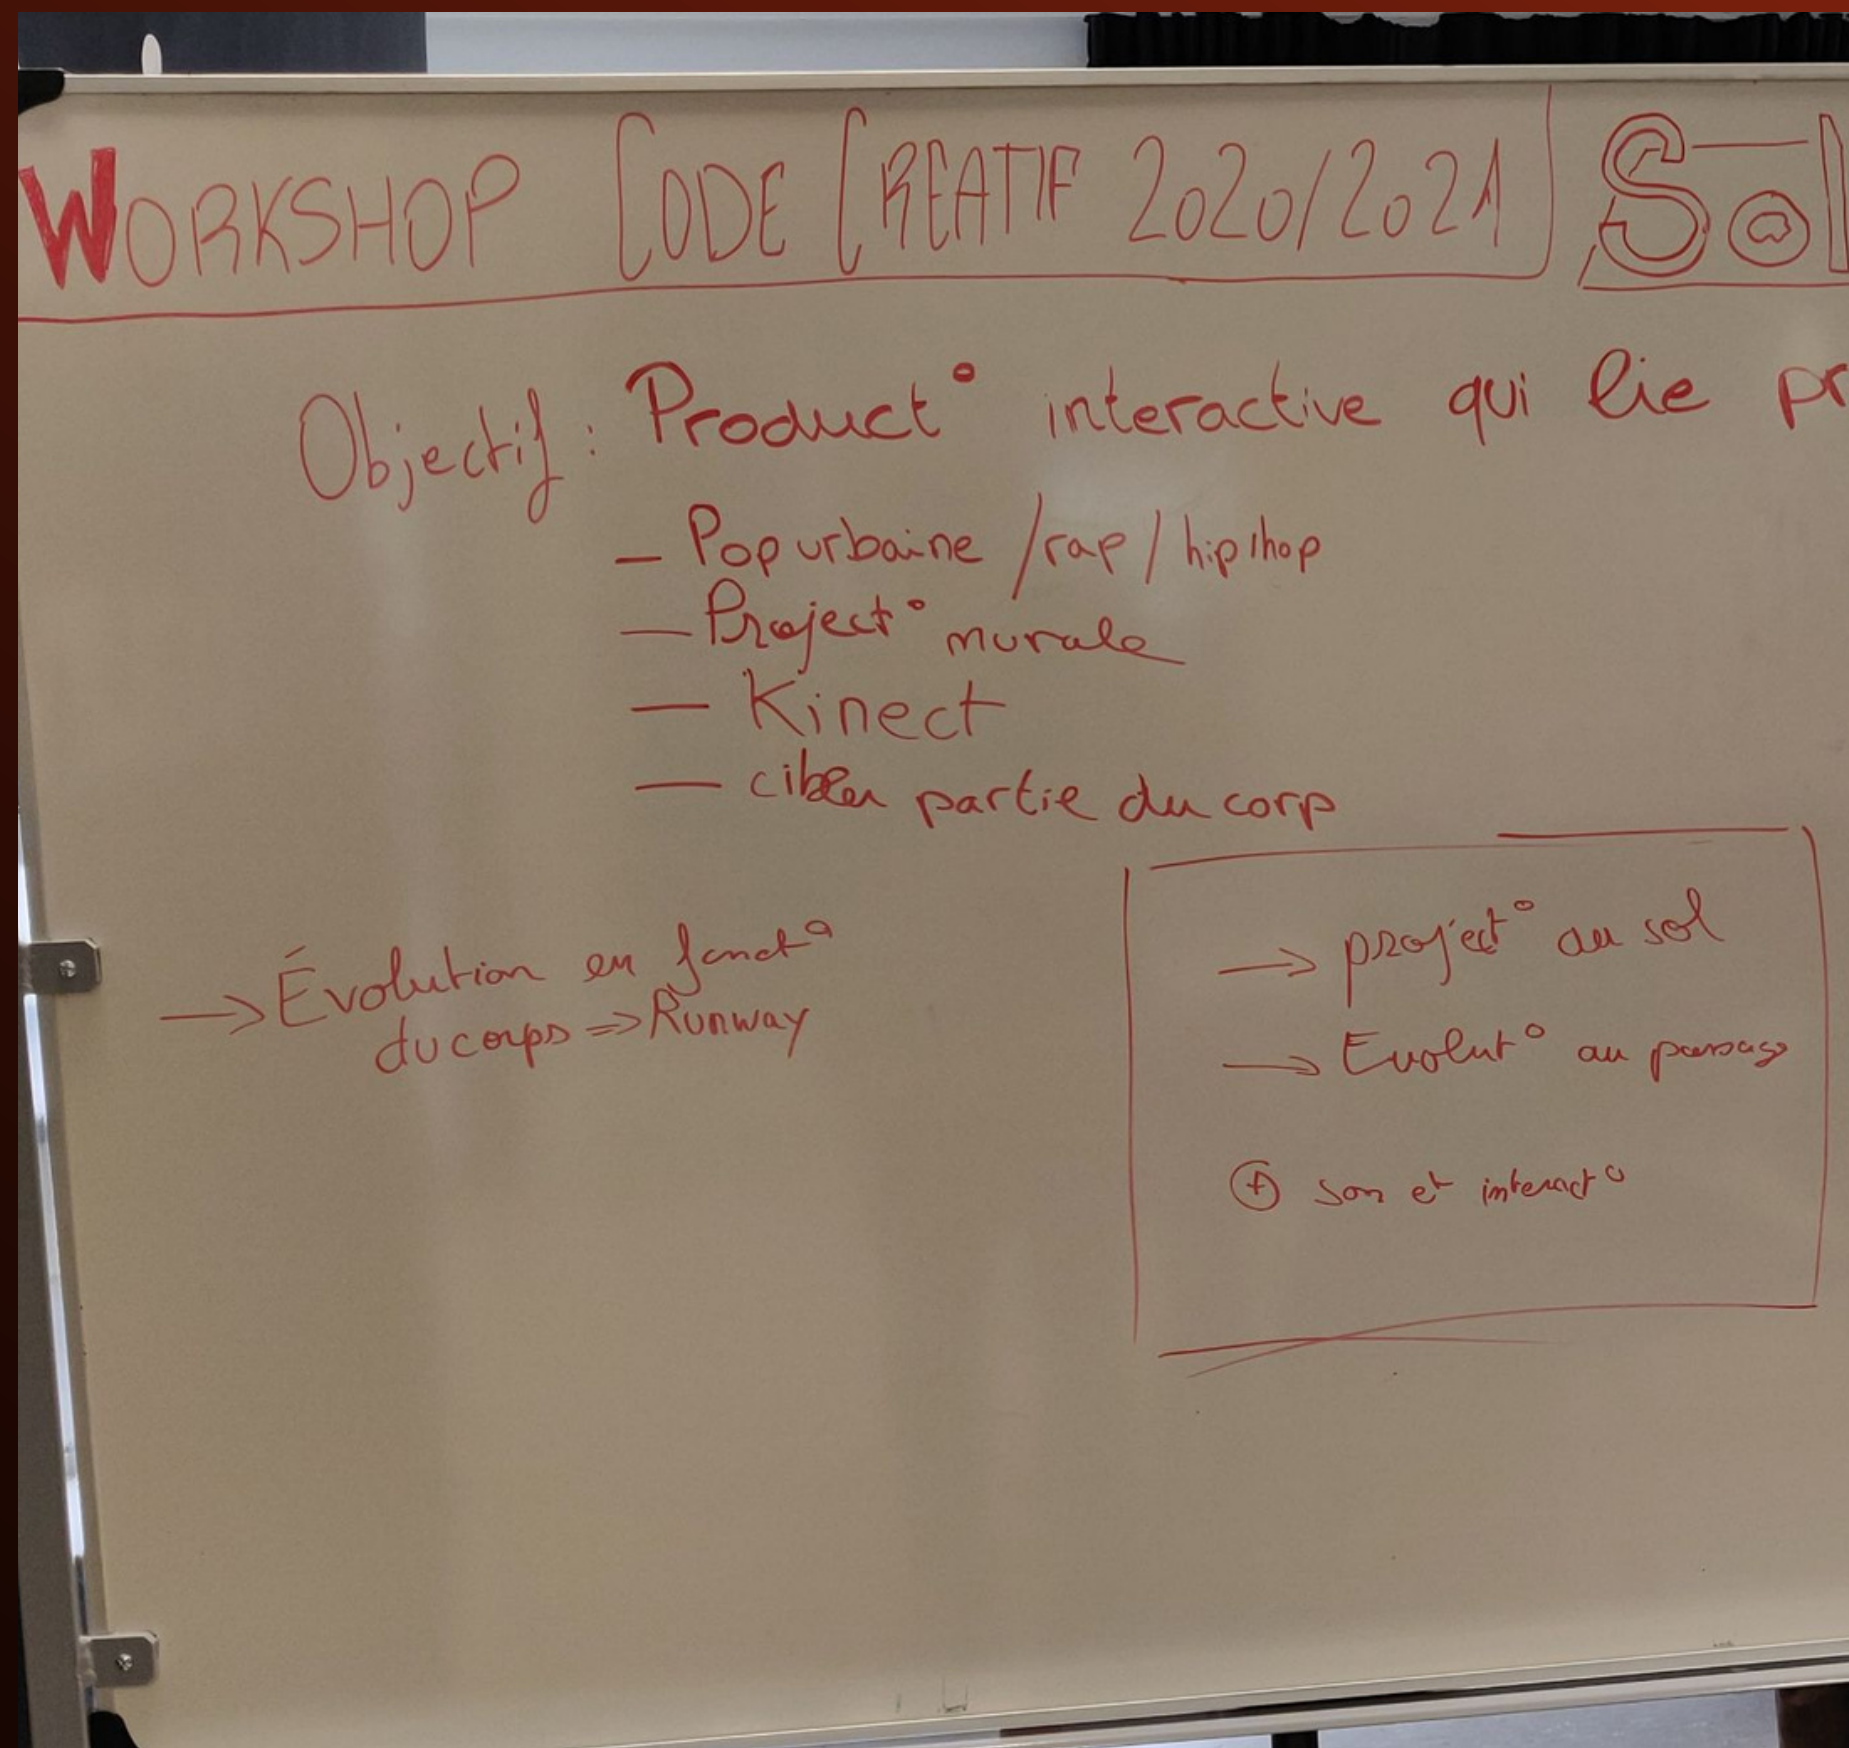 WORKSHOP CODE CREATIF 2020/2021 Sol
Objectif : Product° interactive qui lie pr
— Pop urbaine / rap / hip hop
— Project° murale
— Kinect
— cibler partie du corp
→ Évolution en fonct°
du corps => Runway
→ project° au sol
→ Evolut° au passage
⊕ son et interact°